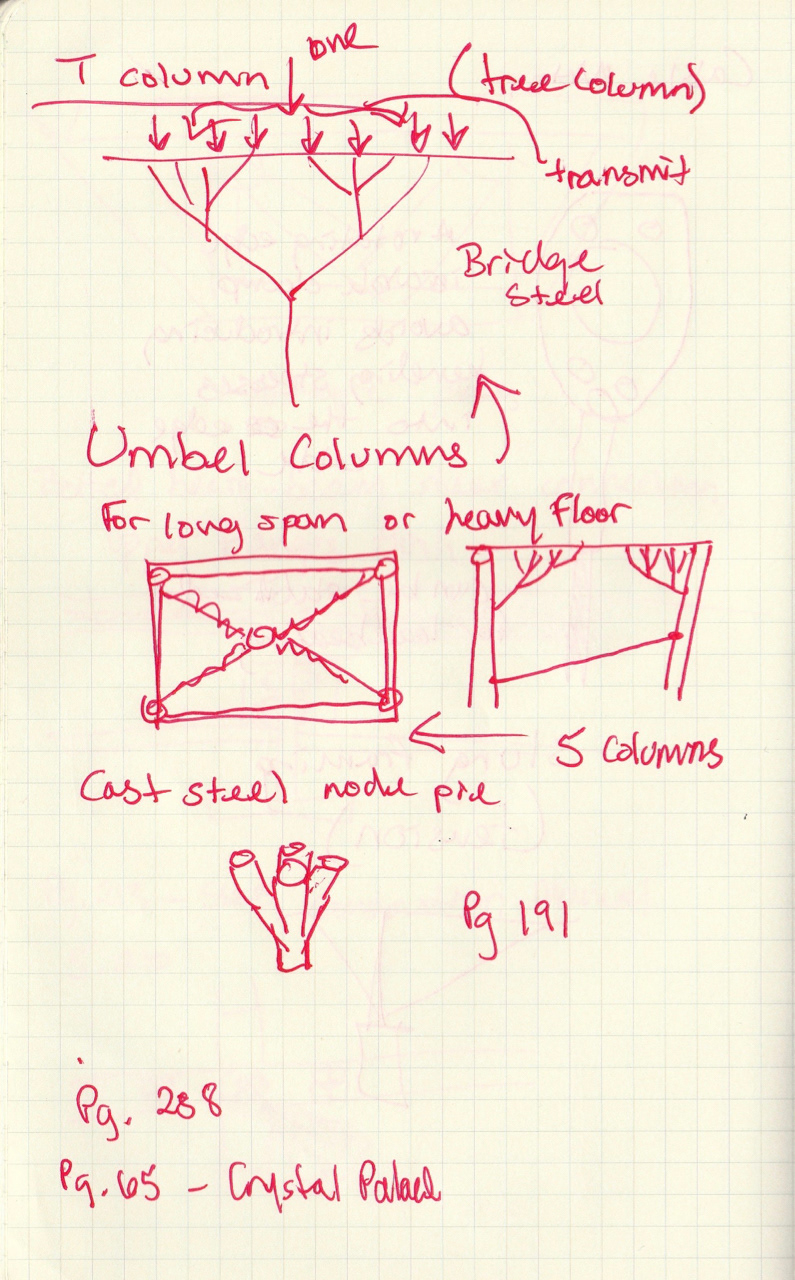 one
T column (tree column)
transmit
Bridge
Steel
Umbel Columns
For long span or heavy floor
5 Columns
Cast steel node pie
Pg 191
Pg. 288
Pg. 65 - Crystal Palace